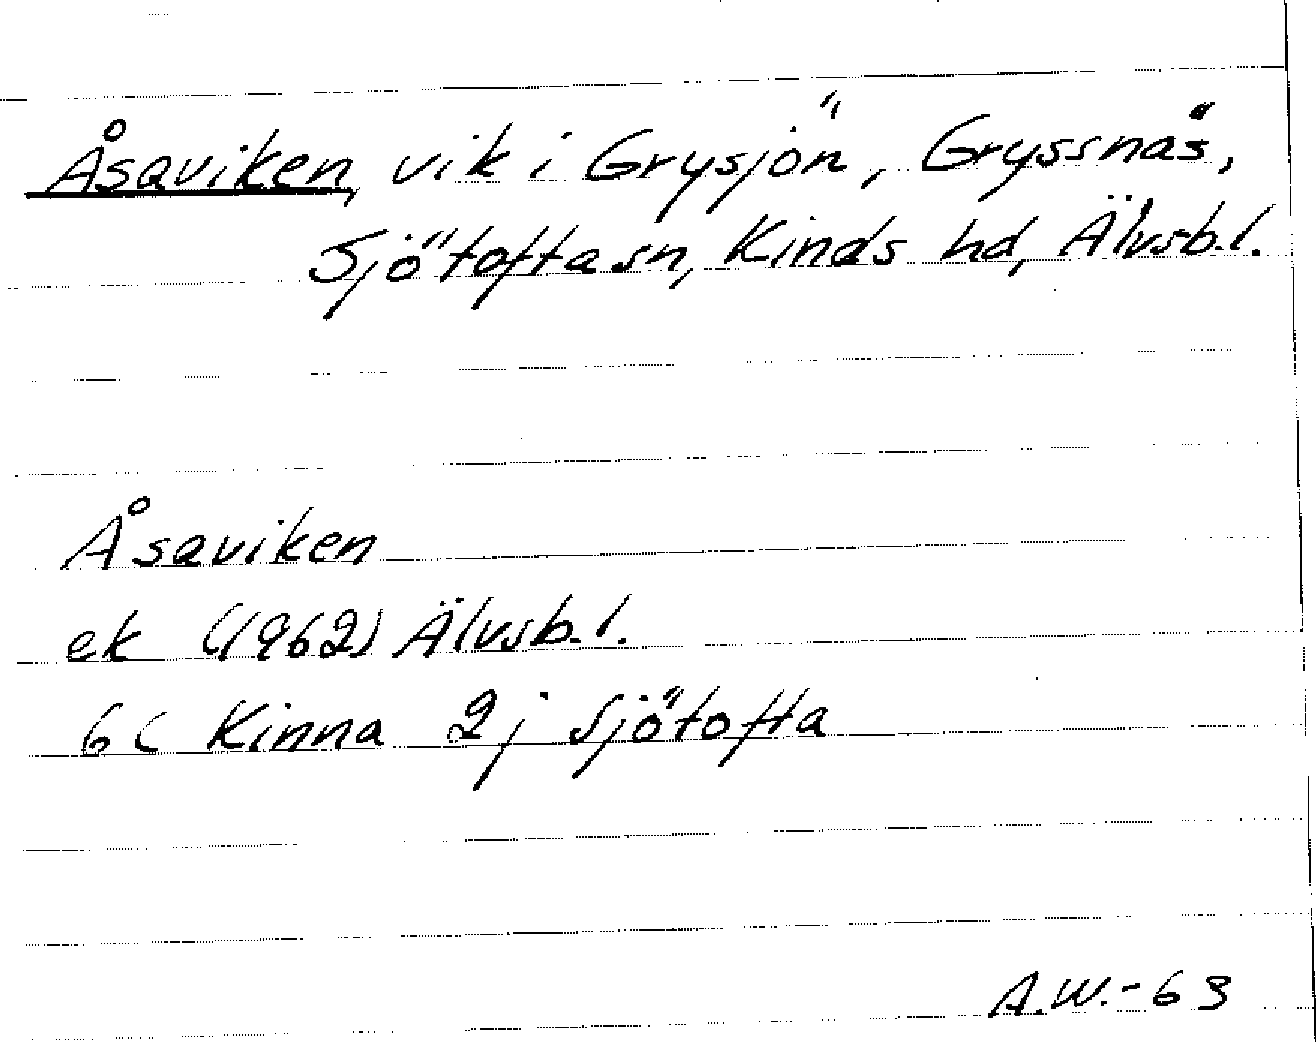 Åsaviken, vik i Grysjön, Gryssnäs,
Sjötofta sn, Kinds hd, Älvsb.l.
Åsaviken
ek (1962) Älvsb.l.
6C Kinna 2j Sjötofta
A.W.-63